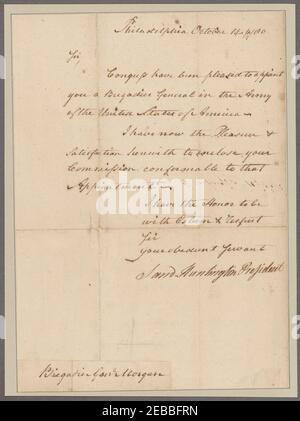 Philadelphia October 14. 1780
Sir,
Congress have been pleased to appoint
you a Brigadier General in the Army
of the United States of America.
I have now the Pleasure &
Satisfaction herewith to enclose your
Commission conformable to that
Appointment.
I have the Honor to be
with Esteem & Respect
Sir
your obedient Servant
Sam Huntington President
Brigadier Genl Morgan
alamy
Image ID: 2EBBFRN
www.alamy.com